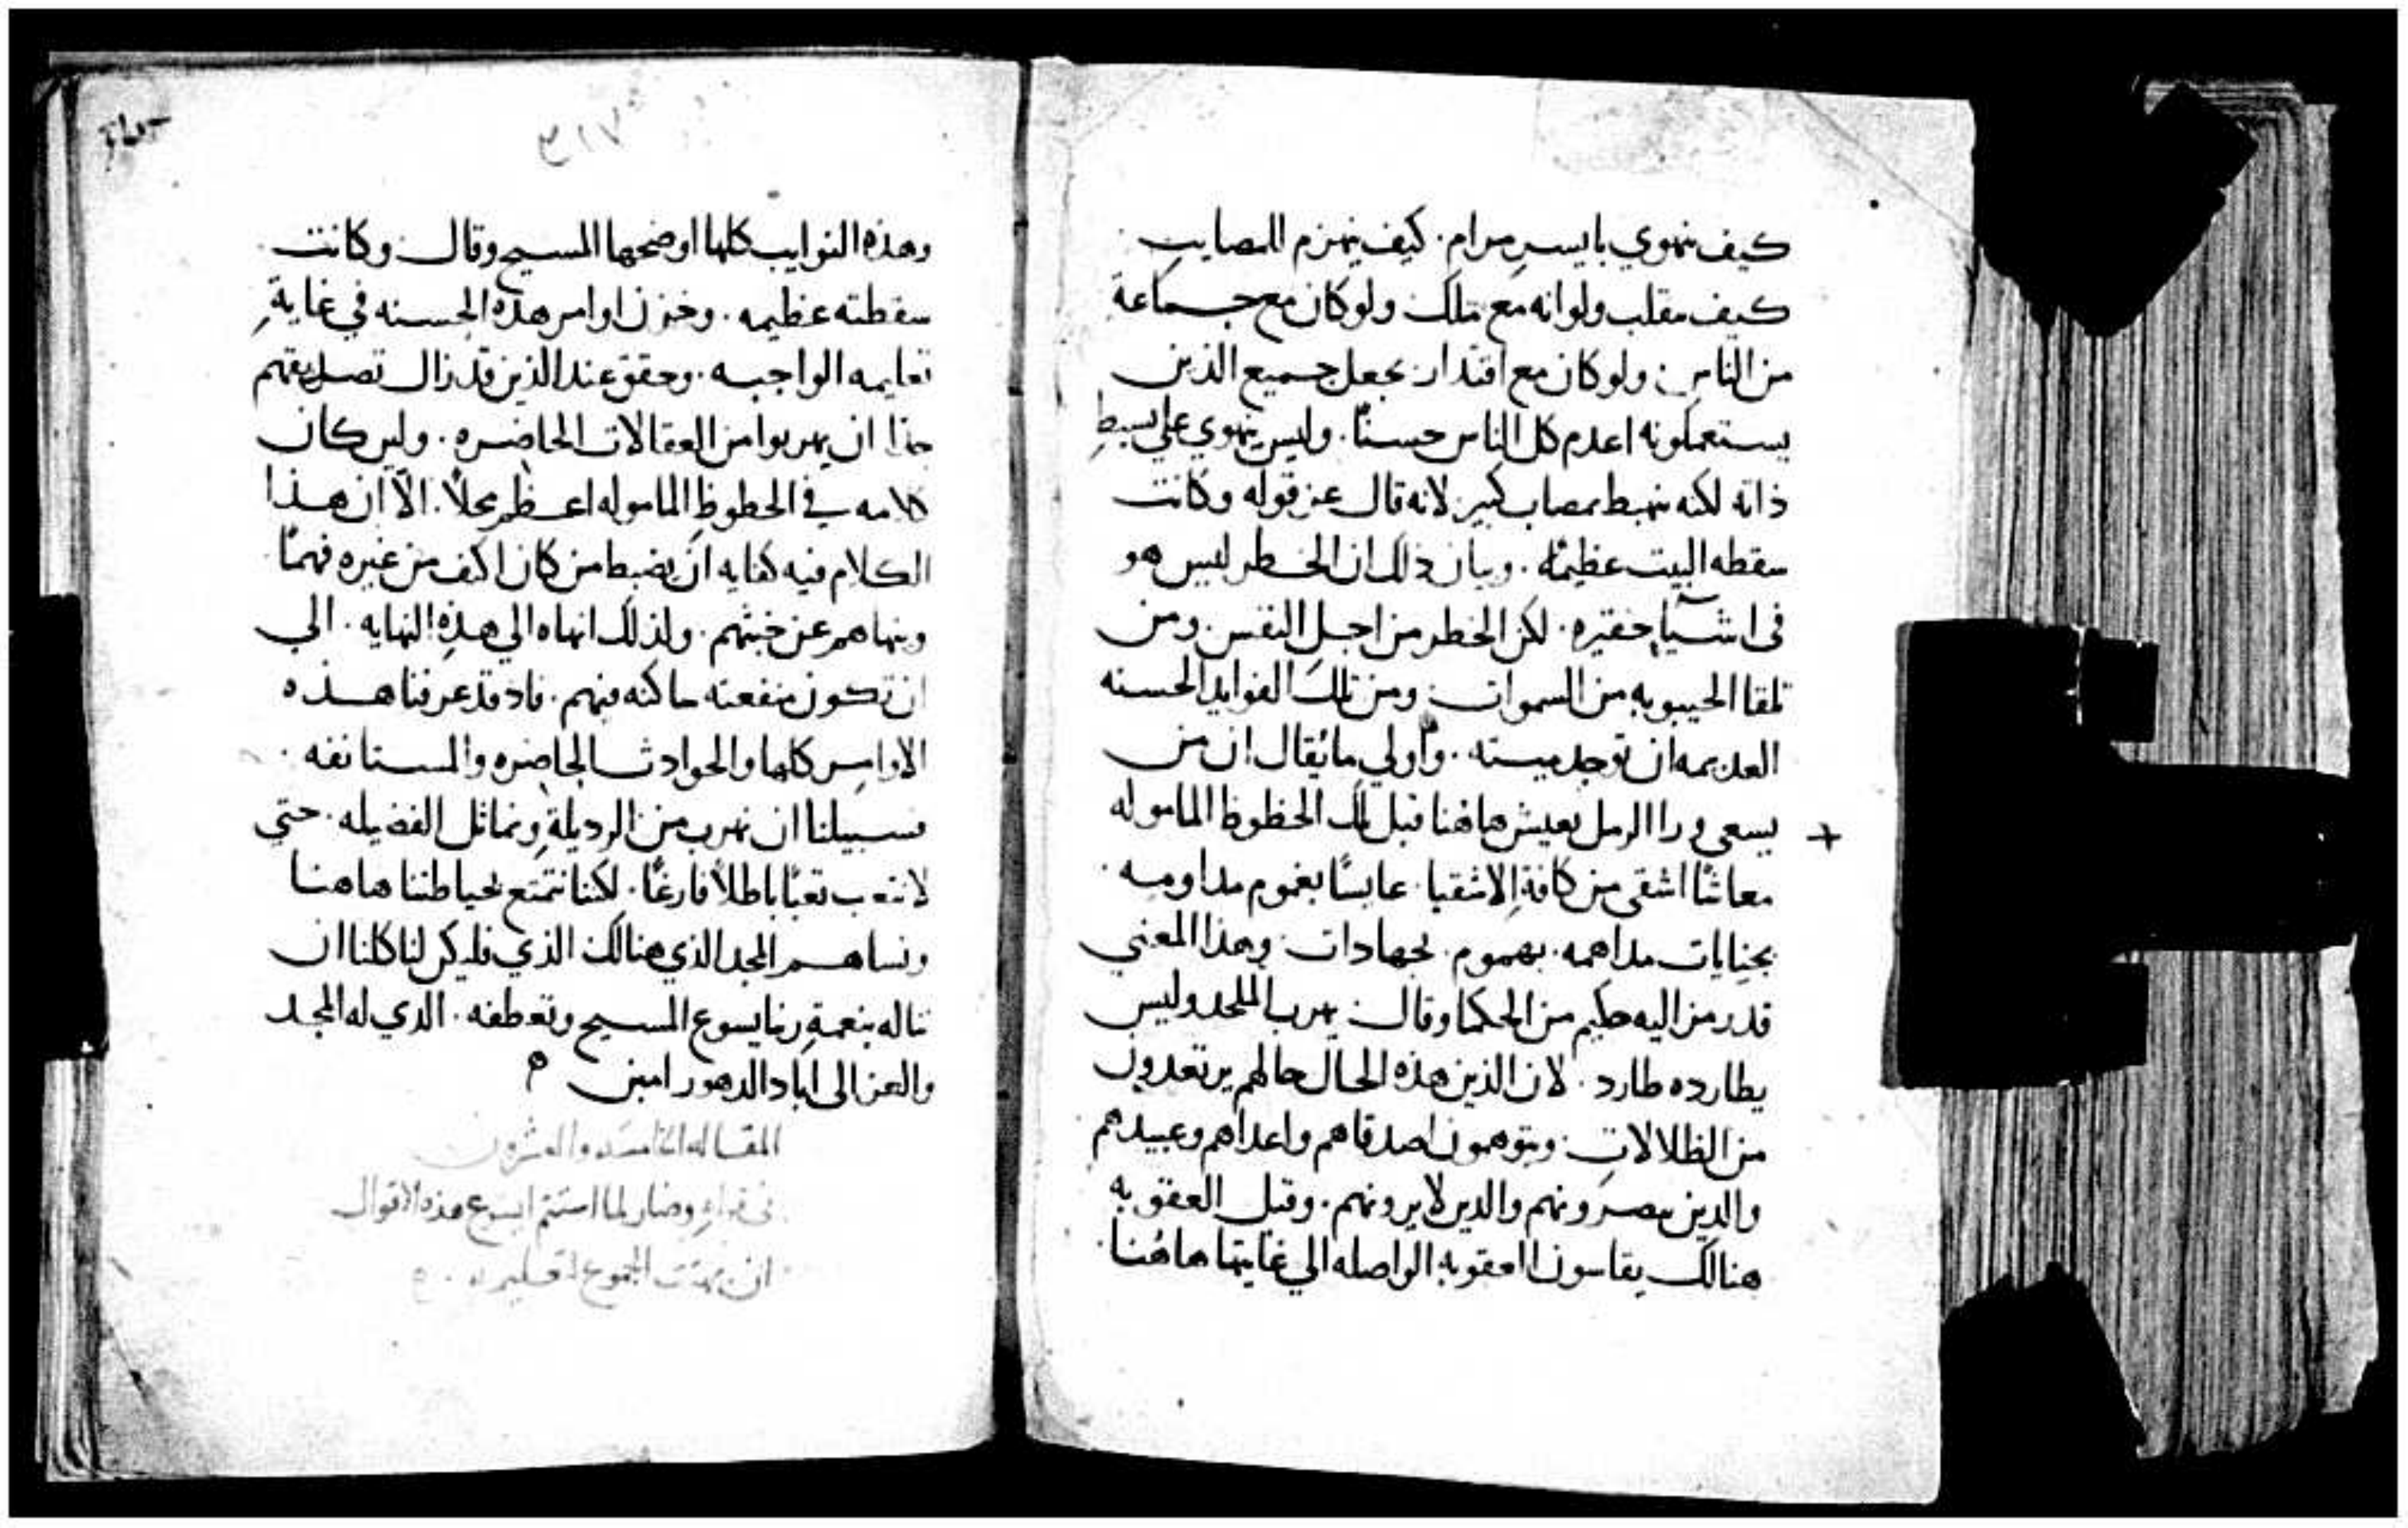 كيف ينهوي بايسر مرام. كيف ينهزم للمصايب
كيف مقلب ولو انه مع ملك ولو كان مع جماعة
من الناس: ولو كان مع اقتدار يجعل جميع الذين
يستعملونه اعدم كل الناس حسنًا. وليس ينهوي على بسيط
ذاته لكنه ينهبط بمصاب كبير لانه قال عن قوله وكانت
سقطه البيت عظيمًه. وبيان ذلك ان الخطر ليس هو
في اشيآ حقيره. لكن الخطر من اجل النفس. ومن
تلقا الحيبوبه من السموات: ومن تلك الفوايد الحسنه
العديمه ان توجد ميسته. وأولي ما يُقال ان من
يسعى ورا الرمل يعيش هاهنا قبل تلك الحظوظ الماموله
معاشًا اشقى من كافةِ الاشقيا. عايشًا بغموم مداومه.
بجنايات مداهمه. بهموم. بجهادات: وهذا المعني
قد رمز اليه حكيم من الحكما وقال: يهرب الملحد وليس
يطارده طارد. لان الذين هذه الحال حالهم يرتعدون
من الظلالات: ويتوهمون اصدقاهم واعداهم وعبيدهم
والذين يبصرونهم والدين لا يرونهم. وقبل العقوبه
هنالك يقاسون العقوبه الواصله الي غايتها هاهُنا.
٣١٧
وهذه النوايب كلها اوضحها المسيح وقال: وكانت
سقطته عظيمه. وخزن اوامر هذه الحسنه في غايةِ
تعاليمه الواجبه. وحقق عند الذين قد زال تصديقهم
هذا ان يهربوا من العقالات الحاضره. ولين كان
كلامه في الحظوظ الماموله اعظم محلاً. الاّ ان هذا
الكلام فيه كفايه ان يضبط من كان اكثف من غيره فهمًا
وينهاهم عن خبثهم. ولذلك انهاه الي هذه النهايه. الي
ان تكون منفعته ساكنه فيهم. فاد قد عرفنا هذه
الاوامر كلها والحوادث الحاضره والمستانفه.
فسبيلنا ان نهرب من الرديلةِ ونماثل الفضيله. حتي
لا نتعب تعبًا باطلاً فارغًا. لكننا نتمتع بحياطتنا هاهنا
ونساهم المجد الذي هنالك: الذي فليكن لنا كلنا ان
نناله بنعمةِ ربنا يسوع المسيح وتعطفه. الدي له المجد
والعز الى اباد الدهور امين
المقاله الخامسه والعشرون
في قوله وصار لما استتم ايسوع هذه الاقوال
ان بهتت الجموع لتعليمه.